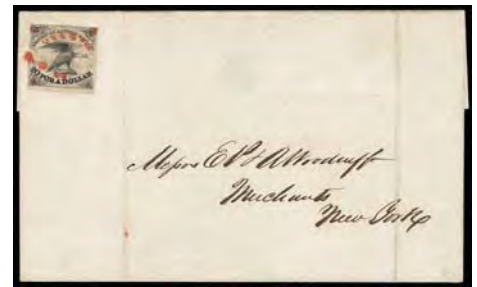 20 FOR A DOLLAR
Messrs E P & A Woodruff
Merchants
New York